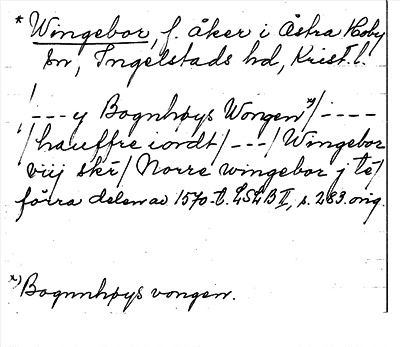 * Wingebor, f. åker i Östra Hoby
sn, Ingelstads hd, Krist. l.
/--- y Bognhøys Wongen x)/----
/hauffre iordt/---/Wingebor
viij skr/Norre wingebor j te/
förra delen av 1570-t. LSLB II, s. 283. orig.
x) Bognnhøys vongen.